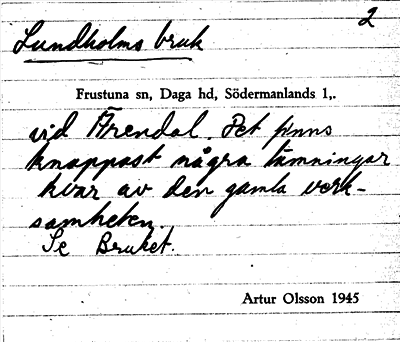 2
Lundholms bruk
Frustuna sn, Daga hd, Södermanlands l,.
vid Ärendal. Det finns
knappast några lämningar
kvar av den gamla verk-
samheten.
Se Bruket.
Artur Olsson 1945